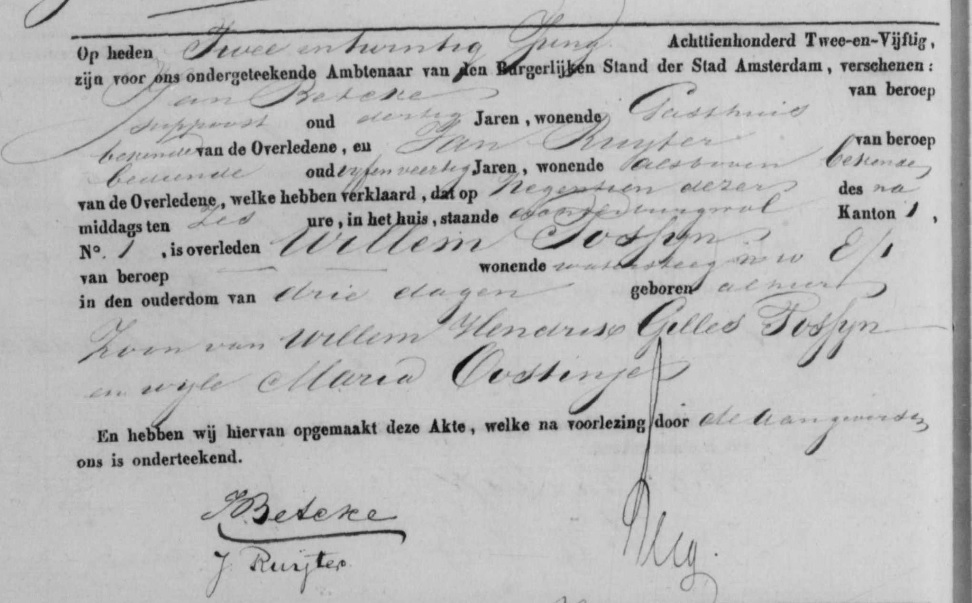 Op heden Twee en twintig Juny Achttienhonderd Twee-en-Vijftig,
zijn voor ons ondergeteekende Ambtenaar van den Burgerlijken Stand der Stad Amsterdam, verschenen:
Jan Betcke van beroep
suppoost oud dertig Jaren, wonende Gasthuis
bekende van de Overledene, en Jan Ruyter van beroep
bediende oud vyfenveertig Jaren, wonende als boven bekende
van de Overledene, welke hebben verklaard, dat op Negentien dezer des na
middags ten Zes ure, in het huis, staande Kanton 1,
No. 1, is overleden Willem Tossyn
van beroep — — wonende watersteeg
in den ouderdom van drie dagen geboren alhier
Zoon van Willem Hendrik Gilles Tossyn
en wyle Maria Oostinje
En hebben wij hiervan opgemaakt deze Akte, welke na voorlezing door de aangevers en
ons is onderteekend.
JBetcke
J Ruijter